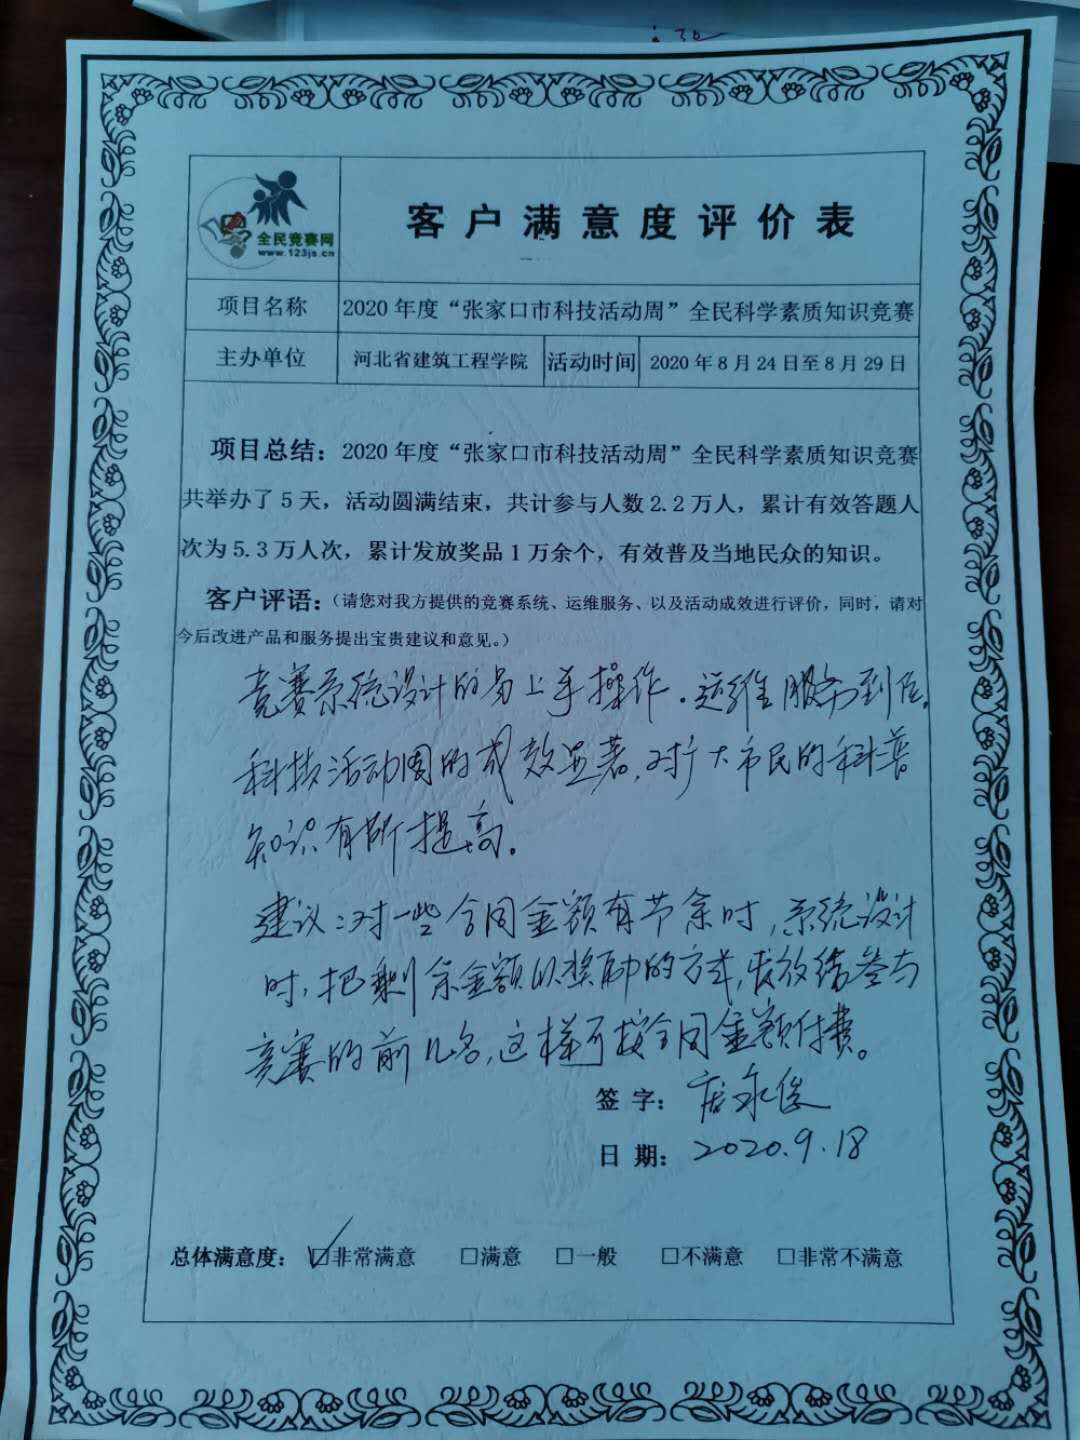 全民竞赛网
www.123js.cn
客户满意度评价表
项目名称 2020年度“张家口市科技活动周”全民科学素质知识竞赛
主办单位 河北省建筑工程学院 活动时间 2020年8月24日至8月29日
项目总结：2020年度“张家口市科技活动周”全民科学素质知识竞赛
共举办了5天，活动圆满结束，共计参与人数2.2万人，累计有效答题人
次为5.3万人次，累计发放奖品1万余个，有效普及当地民众的知识。
客户评语：（请您对我方提供的竞赛系统、运维服务、以及活动成效进行评价，同时，请对
今后改进产品和服务提出宝贵建议和意见。）
竞赛系统设计的易上手操作。运维服务到位。
科技活动周的成效显著，对扩大市民的科普
知识有所提高。
建议：对一些合同金额有节余时，系统设计
时，把剩余金额以奖励的方式，发放给参与
竞赛的前几名，这样可按合同金额付费。
签字：
日期：2020.9.18
总体满意度： ☑非常满意 □满意 □一般 □不满意 □非常不满意